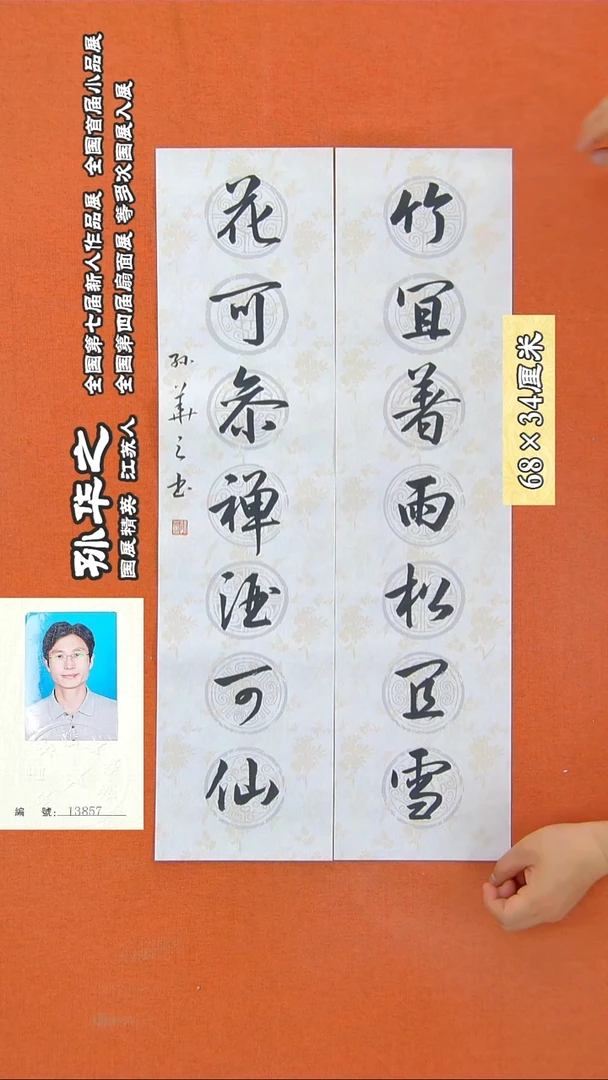 竹宜著雨松宜雪
花可参禅酒可仙
孙华之书
孙华之
国展精英 江苏人
全国第七届新人作品展 全国首届小品展
全国第四届扇面展 等多次国展入展
68×34厘米
編 號: 13857